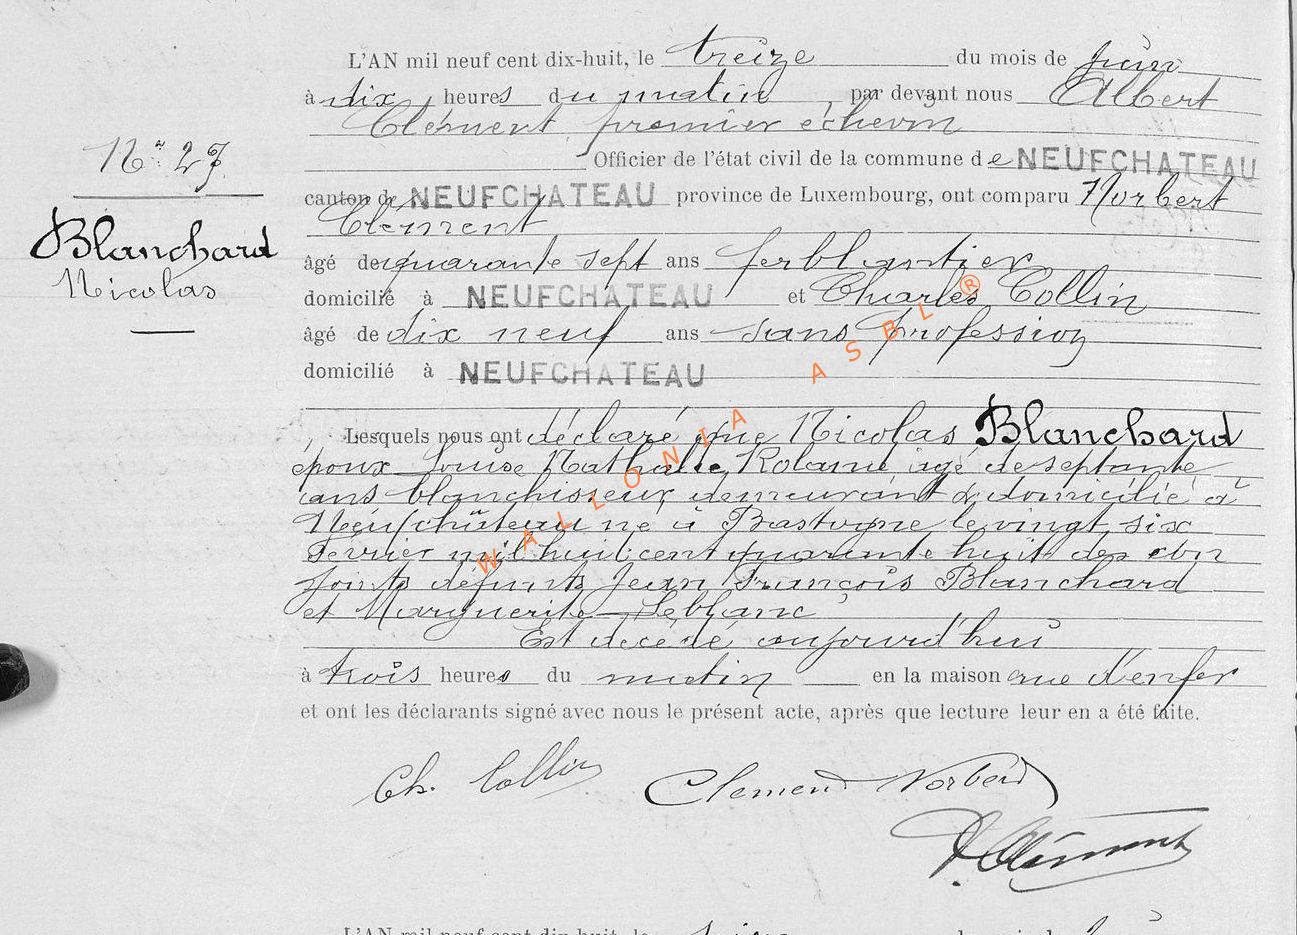 L'AN mil neuf cent dix-huit, le treize du mois de juin
à dix heures du matin, par devant nous Albert
Clément, premier échevin
Officier de l'état civil de la commune de NEUFCHATEAU
No 27
canton de NEUFCHATEAU province de Luxembourg, ont comparu Norbert
Clément
Blanchard
Nicolas
âgé de quarante sept ans ferblantier
domicilié à NEUFCHATEAU et Charles Collin
âgé de dix neuf ans sans profession
domicilié à NEUFCHATEAU
WALLONIA ASBL ®
Lesquels nous ont déclaré que Nicolas Blanchard
époux Louise Nathalie Roland âgé de septante
ans blanchisseur demeurant & domicilié à
Neufchâteau né à Bastogne le vingt six
février mil huit cent quarante huit des con
joints défunts Jean François Blanchard
et Marguerite Leblanc
Est décédé aujourd'hui
à trois heures du matin en la maison rue d'enfer
et ont les déclarants signé avec nous le présent acte, après que lecture leur en a été faite.
Ch. Collin Clement Norbert
A. Clément
L'AN mil neuf cent dix-huit, le